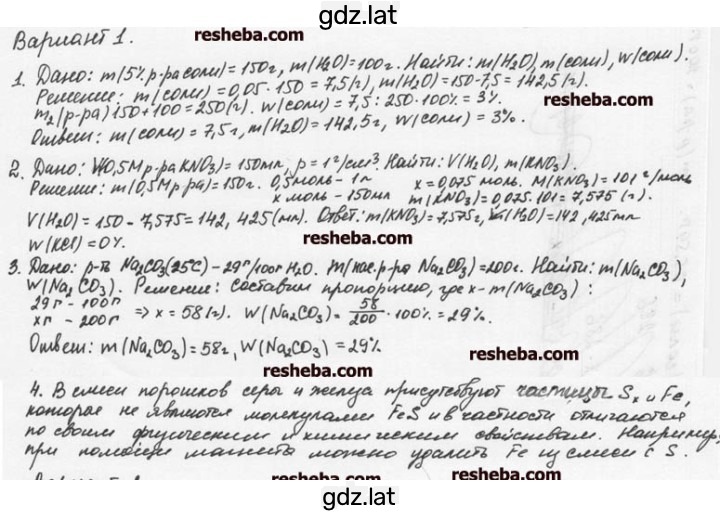 gdz.lat
Вариант 1.
resheba.me
1. Дано: m(5% р-ра соли) = 150г, m(H2O) = 100г. Найти: m(H2O), m(соли), W(соли).
Решение: m(соли) = 0,05 · 150 = 7,5(г), m(H2O) = 150-7,5 = 142,5(г).
m2(р-ра) 150 + 100 = 250(г). W(соли) = 7,5 : 250 · 100% = 3%
resheba.me
Ответ: m(соли) = 7,5г, m(H2O) = 142,5г, W(соли) = 3%.
2. Дано: V(0,5М р-ра KNO3) = 150мл, ρ = 1г/см3. Найти: V(H2O), m(KNO3).
Решение: m(0,5М р-ра) = 150г. 0,5моль - 1л x = 0,075 моль. M(KNO3) = 101 г/моль
x моль - 150мл m(KNO3) = 0,075 · 101 = 7,575 (г).
V(H2O) = 150 - 7,575 = 142,425(мл). Ответ: m(KNO3) = 7,575г, V(H2O) = 142,425мл
W(KCl) = 0%.
resheba.me
3. Дано: р-ть Na2CO3(25°C) - 29г/100г H2O. m(нас. р-ра Na2CO3) = 200г. Найти: m(Na2CO3),
W(Na2CO3). Решение: Составим пропорцию, где x - m(Na2CO3):
29г - 100г
xг - 200г ⇒ x = 58(г). W(Na2CO3) = 58/200 · 100% = 29%.
Ответ: m(Na2CO3) = 58г, W(Na2CO3) = 29%
resheba.me
4. В смеси порошков серы и железа присутствуют частицы Sx и Fe,
которые не являются молекулами FeS и в частности отличаются
по своим физическим и химическим свойствам. Например,
при помощи магнита можно удалить Fe из смеси с S.
resheba.me
resheba.me
gdz.lat